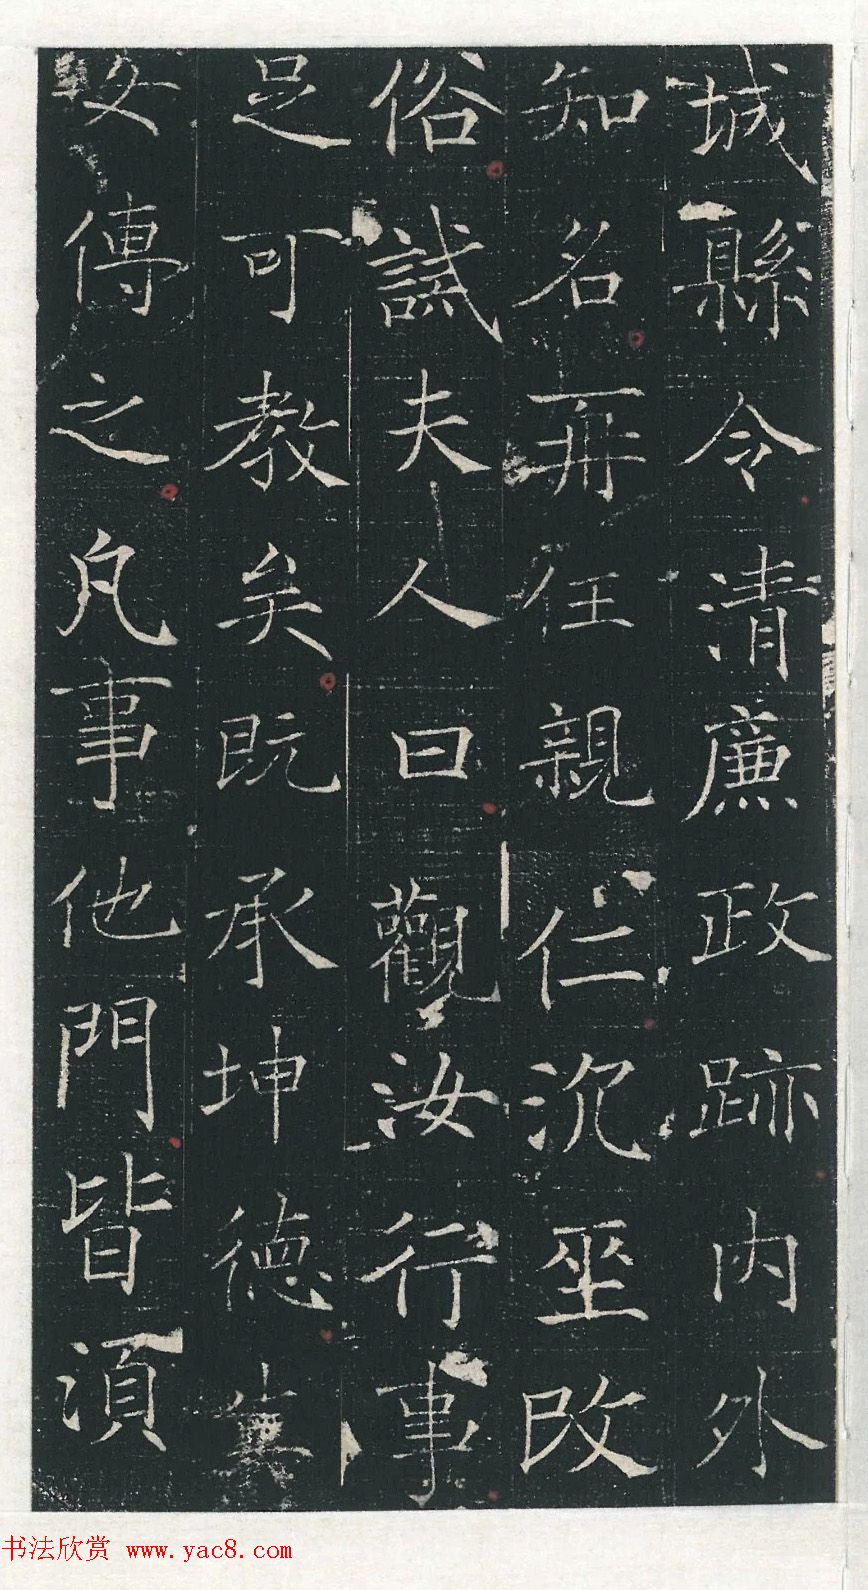 城縣令清廉政跡内外
知名再任親仁沉坐改
俗誡夫人曰觀汝行事
足可教矣既承坤德
女傳之凡事他門皆須
书法欣赏 www.yac8.com